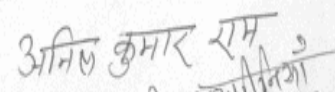 अनिल कुमार राम